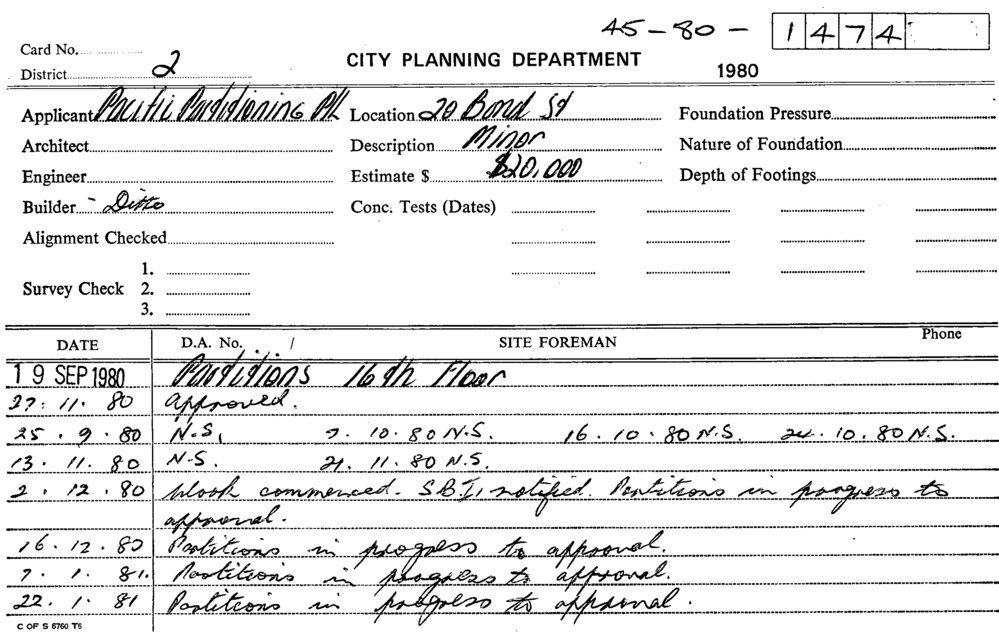 45-80- 1474
Card No.
District 2 CITY PLANNING DEPARTMENT 1980
Applicant Pacific Partitioning P/L Location 20 Bond St Foundation Pressure
Architect Description Minor Nature of Foundation
Engineer Estimate $ $20,000 Depth of Footings
Builder - Ditto Conc. Tests (Dates)
Alignment Checked
1.
Survey Check 2.
3.
DATE D.A. No. / SITE FOREMAN Phone
19 SEP 1980 Partitions 16th Floor
27. 11. 80 approved.
25. 9. 80 N.S. 7. 10. 80 N.S. 16. 10. 80 N.S. 24. 10. 80 N.S.
13. 11. 80 N.S. 21. 11. 80 N.S.
2. 12. 80 Work commenced. S.B.I. notified. Partitions in progress to
approval.
16. 12. 80 Partitions in progress to approval.
7. 1. 81. Partitions in progress to approval.
22. 1. 81 Partitions in progress to approval.
C OF S 6760 T6